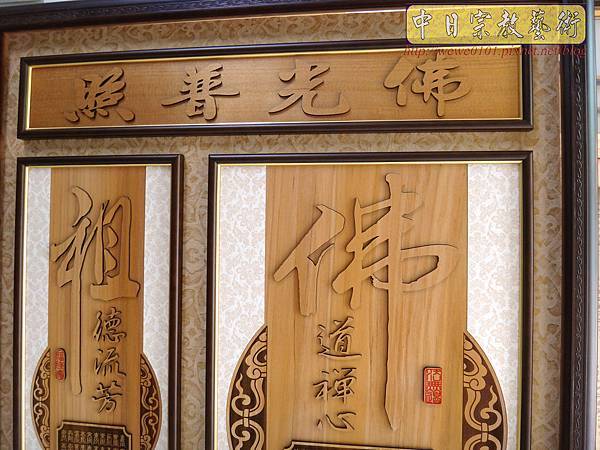 中日宗教藝術
http://wewe0101.pixnet.net/blog
佛光普照
佛
道禪心
祖
德流芳